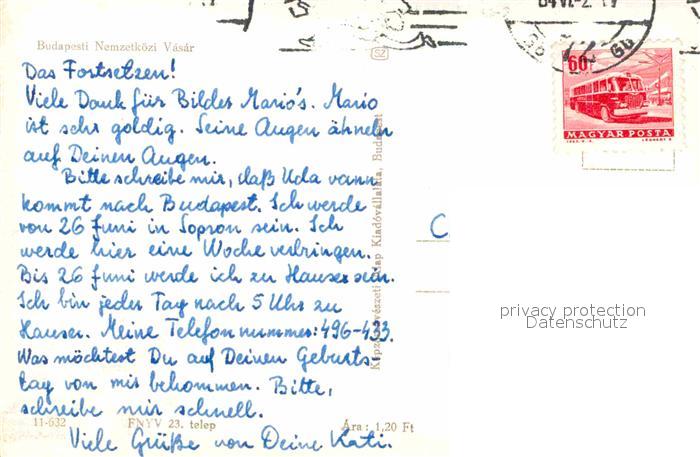 64 VI.-2. 17
Budapesti Nemzetközi Vásár
SZ
60f
MAGYAR POSTA
Das Fortsetzen!
Viele Dank für Bilder Mario's. Mario
ist sehr goldig. Seine Augen ähneln
auf Deinen Augen.
Bitte schreibe mir, daß Uda vann
kommt nach Budapest. Ich werde
von 26 Juni in Sopron sein. Ich
werde hier eine Woche verbringen.
Bis 26 Juni werde ich zu Hause sein.
Ich bin jeder Tag nach 5 Uhr zu
Hause. Meine Telefonnummer: 496-433.
Was möchtest Du auf Deinen Geburts-
tag von mir bekommen. Bitte,
schreibe mir schnell.
Viele Grüße von Deine Kati.
11-632 FNYV 23. telep Ára: 1,20 Ft
Kiadóvállalata, Budapest
privacy protection
Datenschutz